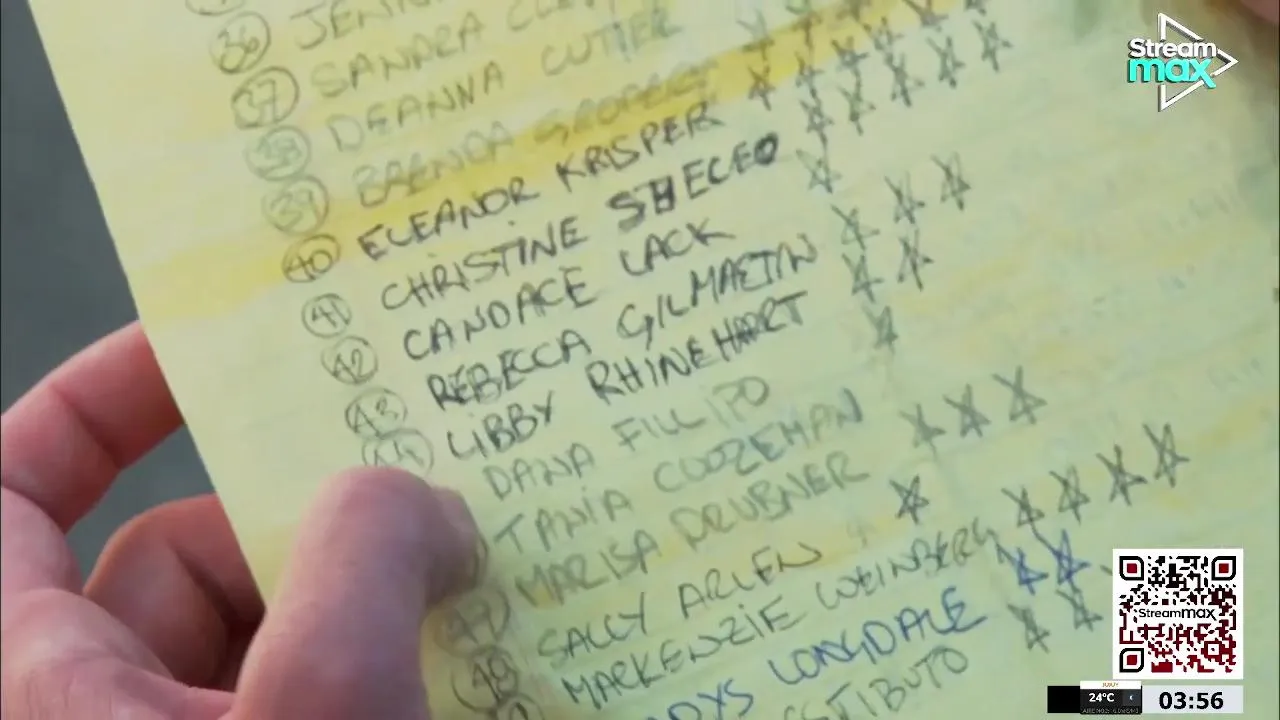 36 JENN
37 SANDRA CLE
38 DEANNA CUTTER
39 BRENDA
40 ELEANOR KRISPER
41 CHRISTINE SHECEO
42 CANDACE LACK
43 REBECCA GILMARTIN
44 LIBBY RHINEHART
DANA FILLIPO
TANIA COOZEMAN
47 MARISA DRUBNER
48 SALLY ARLEN
MARKENZIE WEINBERG
DYS LONGDALE
STIBUTO
Stream
max
Streammax
24°C
03:56